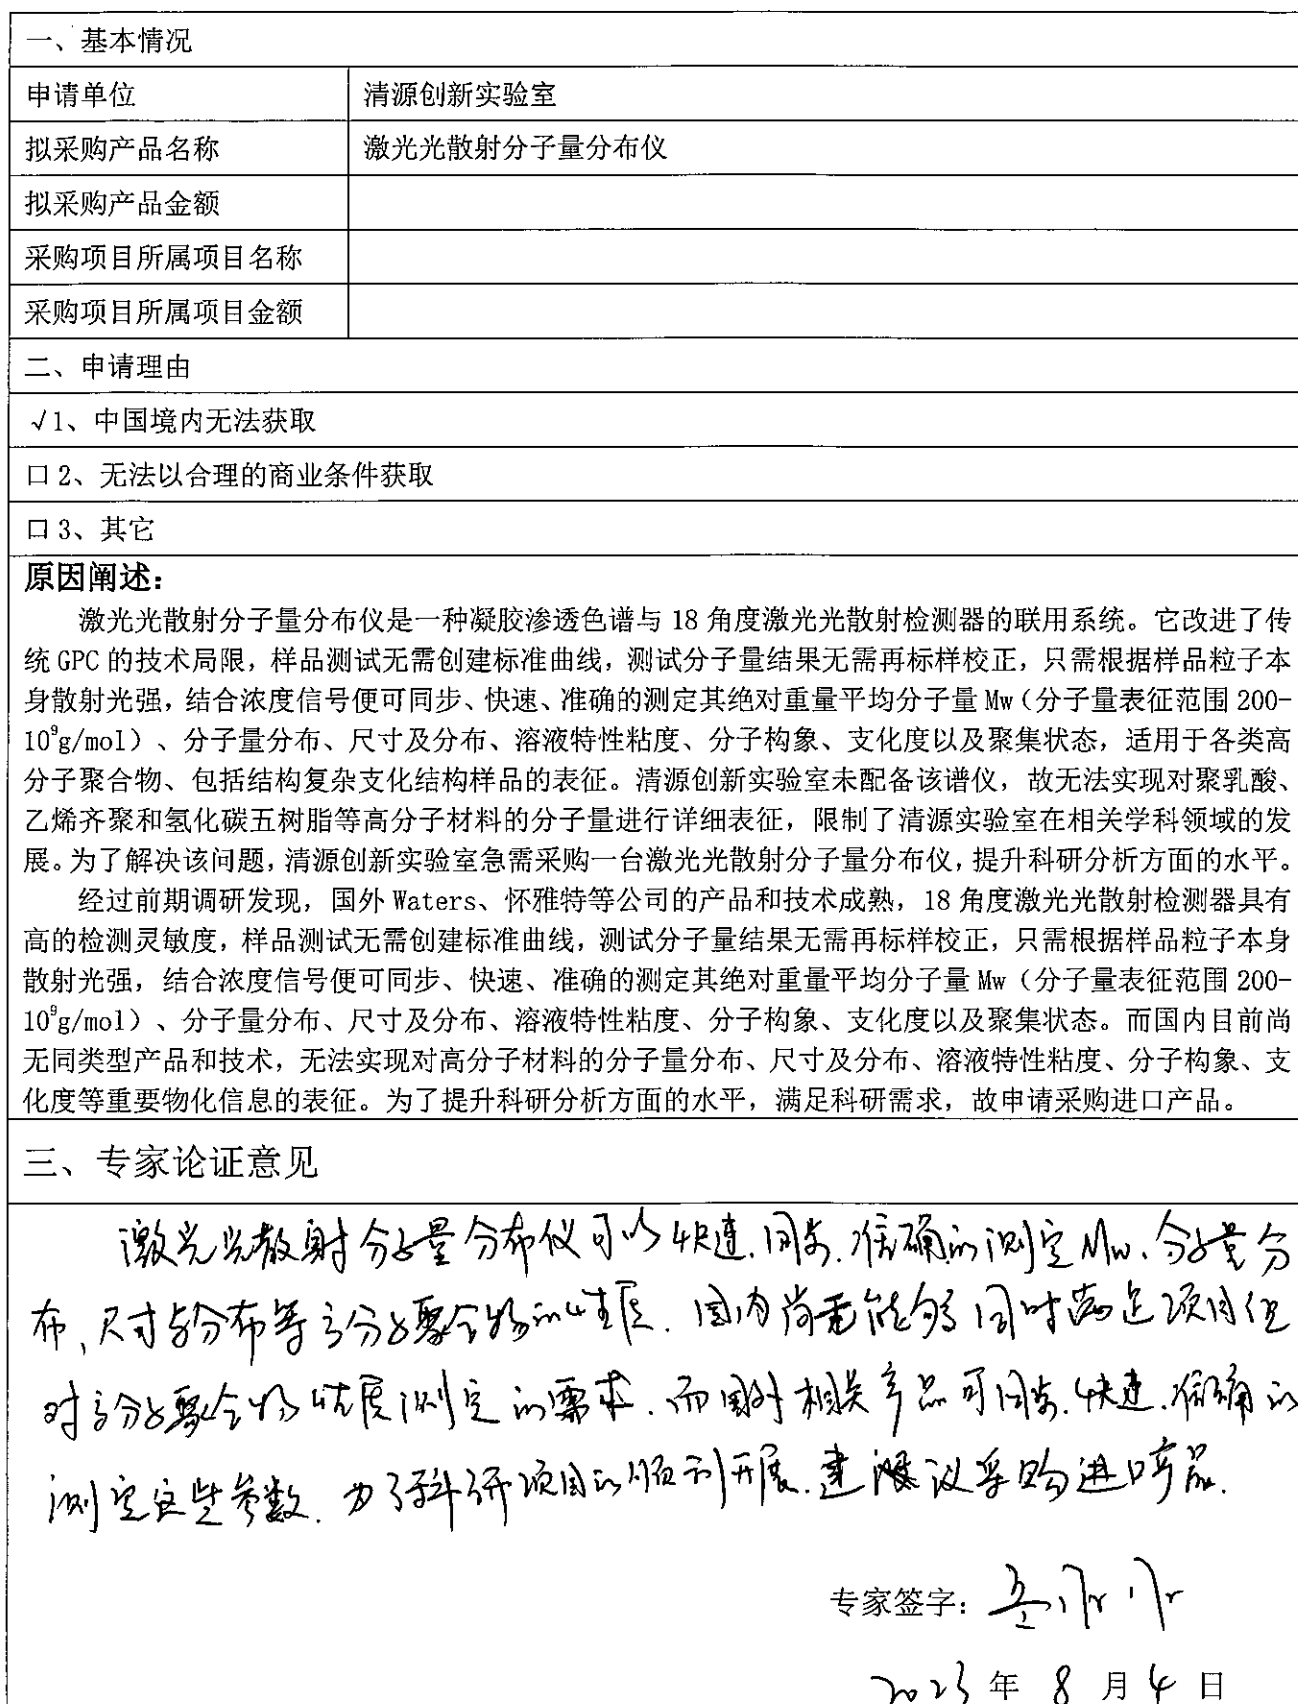 一、基本情况
申请单位 清源创新实验室
拟采购产品名称 激光光散射分子量分布仪
拟采购产品金额
采购项目所属项目名称
采购项目所属项目金额
二、申请理由
√1、中国境内无法获取
口 2、无法以合理的商业条件获取
口 3、其它
原因阐述：
激光光散射分子量分布仪是一种凝胶渗透色谱与 18 角度激光光散射检测器的联用系统。它改进了传
统 GPC 的技术局限，样品测试无需创建标准曲线，测试分子量结果无需再标样校正，只需根据样品粒子本
身散射光强，结合浓度信号便可同步、快速、准确的测定其绝对重量平均分子量 Mw（分子量表征范围 200-
10⁹g/mol）、分子量分布、尺寸及分布、溶液特性粘度、分子构象、支化度以及聚集状态，适用于各类高
分子聚合物、包括结构复杂支化结构样品的表征。清源创新实验室未配备该谱仪，故无法实现对聚乳酸、
乙烯齐聚和氢化碳五树脂等高分子材料的分子量进行详细表征，限制了清源实验室在相关学科领域的发
展。为了解决该问题，清源创新实验室急需采购一台激光光散射分子量分布仪，提升科研分析方面的水平。
经过前期调研发现，国外 Waters、怀雅特等公司的产品和技术成熟，18 角度激光光散射检测器具有
高的检测灵敏度，样品测试无需创建标准曲线，测试分子量结果无需再标样校正，只需根据样品粒子本身
散射光强，结合浓度信号便可同步、快速、准确的测定其绝对重量平均分子量 Mw（分子量表征范围 200-
10⁹g/mol）、分子量分布、尺寸及分布、溶液特性粘度、分子构象、支化度以及聚集状态。而国内目前尚
无同类型产品和技术，无法实现对高分子材料的分子量分布、尺寸及分布、溶液特性粘度、分子构象、支
化度等重要物化信息的表征。为了提升科研分析方面的水平，满足科研需求，故申请采购进口产品。
三、专家论证意见
激光光散射分子量分布仪可以快速、同步、准确的测定Mw、分子量分
布、尺寸与分布等高分子聚合物的性质．国内尚无能够同时满足项目组
对高分子聚合物性质测定的需求．而国外相关产品可同步、快速、准确的
测定这些参数．为了科研项目的顺利开展，建议采购进口产品．
专家签字：
2023 年 8 月 4 日